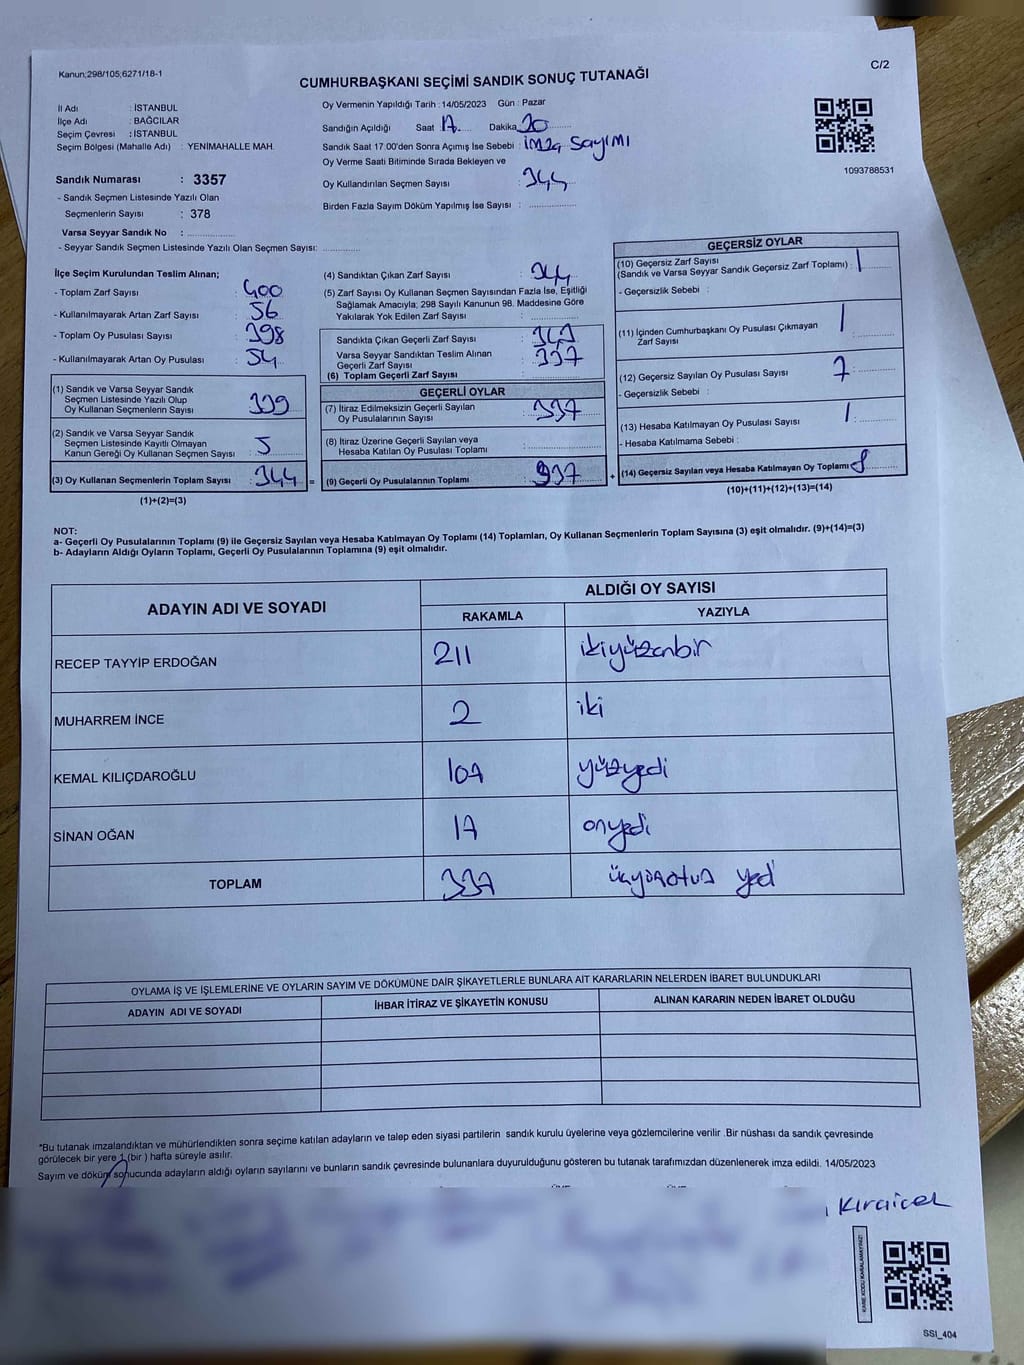 Kanun;298/105;6271/18-1
C/2
CUMHURBAŞKANI SEÇİMİ SANDIK SONUÇ TUTANAĞI
İl Adı : İSTANBUL
İlçe Adı : BAĞCILAR
Seçim Çevresi : İSTANBUL
Seçim Bölgesi (Mahalle Adı) : YENİMAHALLE MAH.
Sandık Numarası : 3357
- Sandık Seçmen Listesinde Yazılı Olan
Seçmenlerin Sayısı : 378
Varsa Seyyar Sandık No :
- Seyyar Sandık Seçmen Listesinde Yazılı Olan Seçmen Sayısı:
Oy Vermenin Yapıldığı Tarih : 14/05/2023 Gün : Pazar
Sandığın Açıldığı Saat 17 Dakika 20
Sandık Saat 17:00'den Sonra Açımış İse Sebebi : imza sayımı
Oy Verme Saati Bitiminde Sırada Bekleyen ve
Oy Kullandırılan Seçmen Sayısı : 344
Birden Fazla Sayım Döküm Yapılmış İse Sayısı :
1093788531
İlçe Seçim Kurulundan Teslim Alınan;
- Toplam Zarf Sayısı : 400
- Kullanılmayarak Artan Zarf Sayısı : 56
- Toplam Oy Pusulası Sayısı : 398
- Kullanılmayarak Artan Oy Pusulası : 54
(1) Sandık ve Varsa Seyyar Sandık
Seçmen Listesinde Yazılı Olup
Oy Kullanan Seçmenlerin Sayısı : 339
(2) Sandık ve Varsa Seyyar Sandık
Seçmen Listesinde Kayıtlı Olmayan
Kanun Gereği Oy Kullanan Seçmen Sayısı : 5
(3) Oy Kullanan Seçmenlerin Toplam Sayısı : 344 =
(1)+(2)=(3)
(4) Sandıktan Çıkan Zarf Sayısı : 344
(5) Zarf Sayısı Oy Kullanan Seçmen Sayısından Fazla İse, Eşitliği
Sağlamak Amacıyla; 298 Sayılı Kanunun 98. Maddesine Göre
Yakılarak Yok Edilen Zarf Sayısı :
Sandıkta Çıkan Geçerli Zarf Sayısı : 343
Varsa Seyyar Sandıktan Teslim Alınan
Geçerli Zarf Sayısı : 337
(6) Toplam Geçerli Zarf Sayısı
GEÇERLİ OYLAR
(7) İtiraz Edilmeksizin Geçerli Sayılan
Oy Pusulalarının Sayısı : 337
(8) İtiraz Üzerine Geçerli Sayılan veya
Hesaba Katılan Oy Pusulası Toplamı :
(9) Geçerli Oy Pusulalarının Toplamı : 337 +
GEÇERSİZ OYLAR
(10) Geçersiz Zarf Sayısı
(Sandık ve Varsa Seyyar Sandık Geçersiz Zarf Toplamı) : 1
- Geçersizlik Sebebi :
(11) İçinden Cumhurbaşkanı Oy Pusulası Çıkmayan
Zarf Sayısı : 1
(12) Geçersiz Sayılan Oy Pusulası Sayısı : 7
- Geçersizlik Sebebi :
(13) Hesaba Katılmayan Oy Pusulası Sayısı : 1
- Hesaba Katılmama Sebebi :
(14) Geçersiz Sayılan veya Hesaba Katılmayan Oy Toplamı : 8
(10)+(11)+(12)+(13)=(14)
NOT:
a- Geçerli Oy Pusulalarının Toplamı (9) ile Geçersiz Sayılan veya Hesaba Katılmayan Oy Toplamı (14) Toplamları, Oy Kullanan Seçmenlerin Toplam Sayısına (3) eşit olmalıdır. (9)+(14)=(3)
b- Adayların Aldığı Oyların Toplamı, Geçerli Oy Pusulalarının Toplamına (9) eşit olmalıdır.
ADAYIN ADI VE SOYADI
ALDIĞI OY SAYISI
RAKAMLA YAZIYLA
RECEP TAYYİP ERDOĞAN 211 ikiyüzonbir
MUHARREM İNCE 2 iki
KEMAL KILIÇDAROĞLU 107 yüzyedi
SİNAN OĞAN 17 onyedi
TOPLAM 337 üçyüzotuz yedi
OYLAMA İŞ VE İŞLEMLERİNE VE OYLARIN SAYIM VE DÖKÜMÜNE DAİR ŞİKAYETLERLE BUNLARA AİT KARARLARIN NELERDEN İBARET BULUNDUKLARI
ADAYIN ADI VE SOYADI İHBAR İTİRAZ VE ŞİKAYETİN KONUSU ALINAN KARARIN NEDEN İBARET OLDUĞU
*Bu tutanak imzalandıktan ve mühürlendikten sonra seçime katılan adayların ve talep eden siyasi partilerin sandık kurulu üyelerine veya gözlemcilerine verilir .Bir nüshası da sandık çevresinde
görülecek bir yere 1 (bir ) hafta süreyle asılır.
Sayım ve döküm sonucunda adayların aldığı oyların sayılarını ve bunların sandık çevresinde bulunanlara duyurulduğunu gösteren bu tutanak tarafımızdan düzenlenerek imza edildi. 14/05/2023
KARE KODU KARALAMAYINIZ!
SSI_404